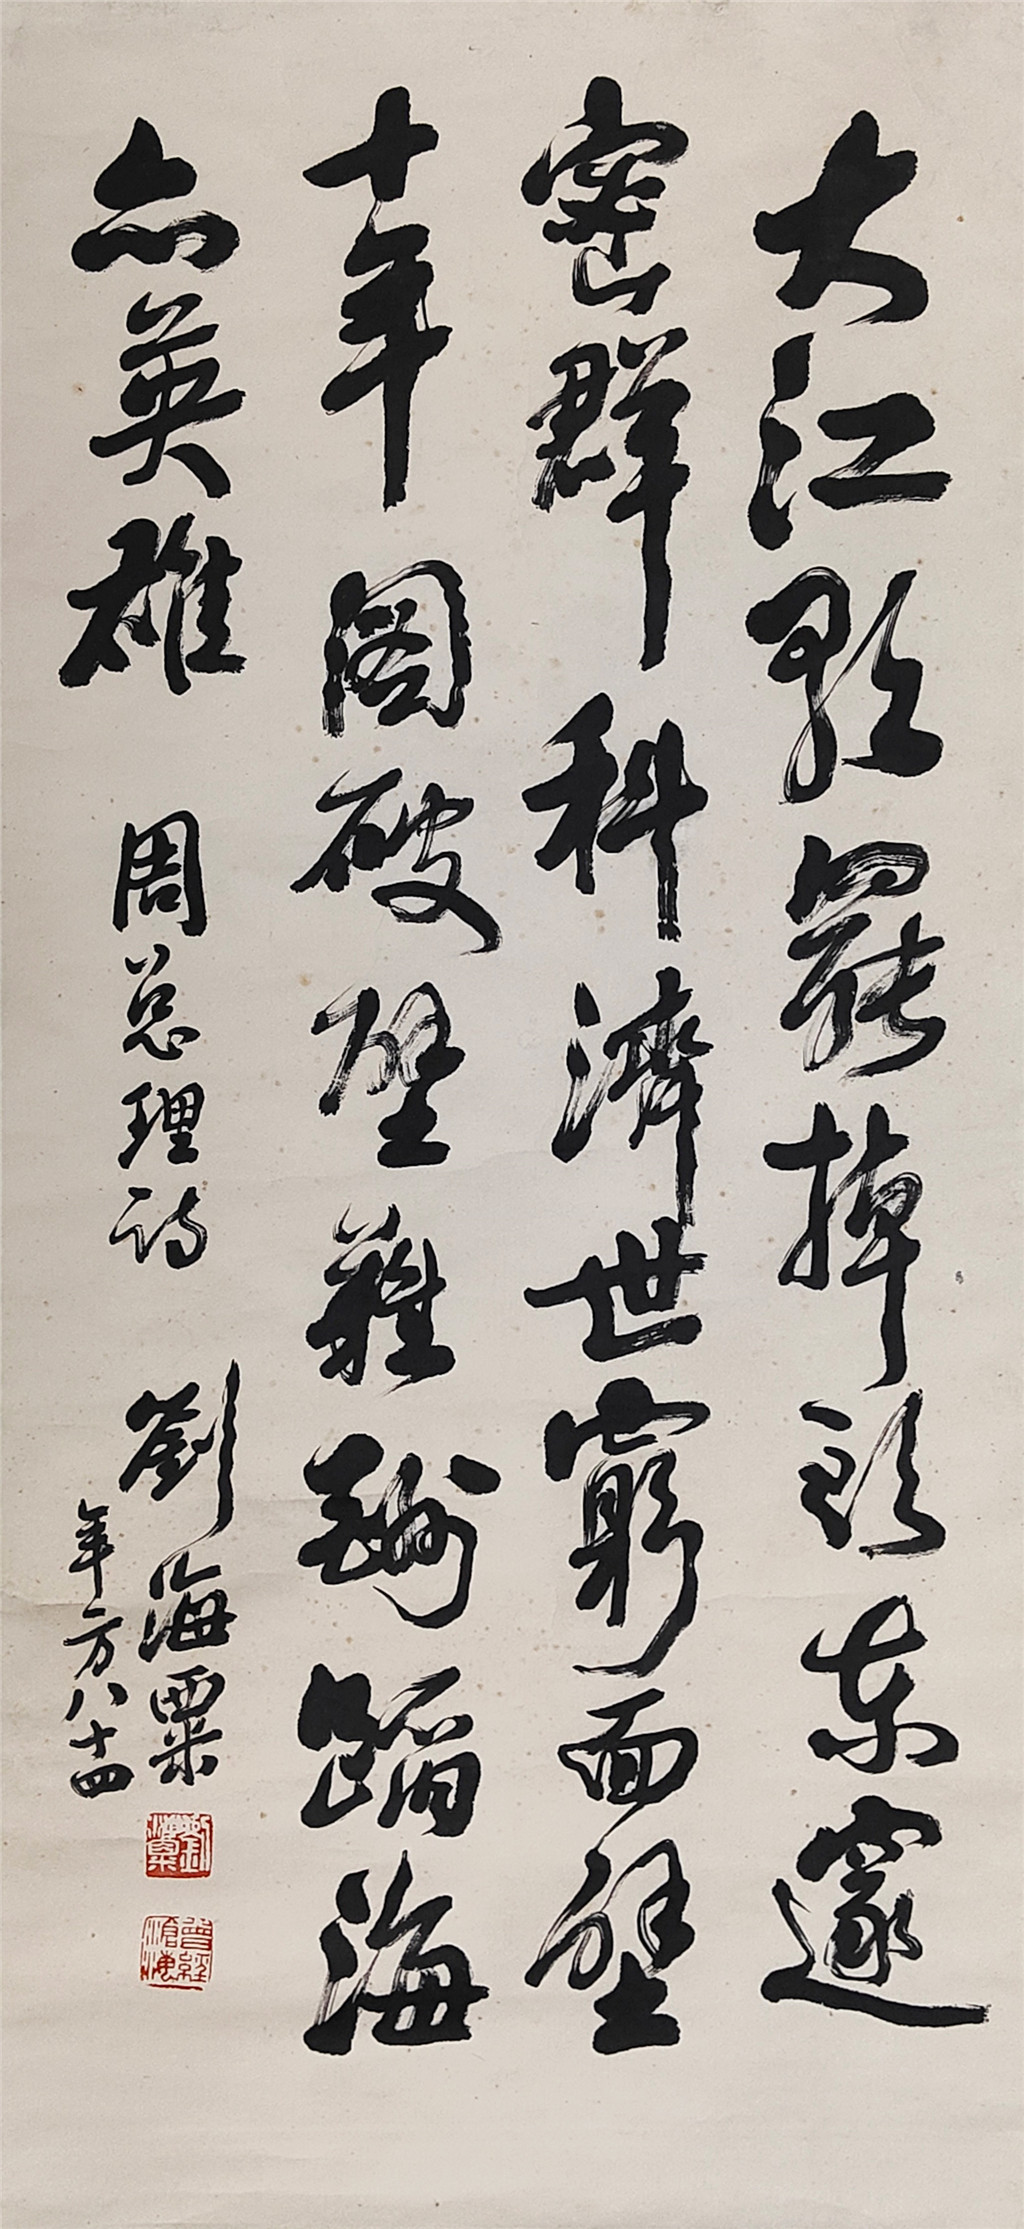 大江歌罢掉頭東邃
密群科濟世窮面壁
十年图破壁難酬蹈海
亦英雄
周总理诗
劉海粟
年方八十四
劉海粟
曾經滄海